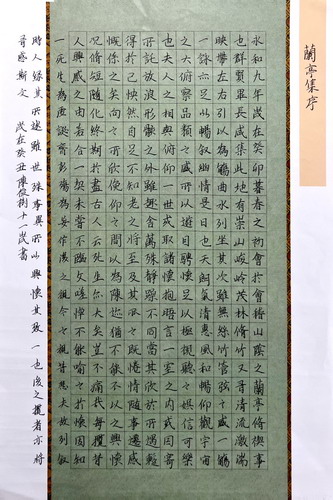 蘭亭集序
永和九年歲在癸卯暮春之初會於會稽山陰之蘭亭脩禊事
也群賢畢長咸集此地有崇山峻岭茂林脩竹又有清流激湍
映帶左右引以為流觴曲水列坐其次雖無絲竹管弦之盛一觴
一詠亦足以暢敘幽情是日也天朗氣清惠風和暢仰觀宇宙
之大俯察品類之盛所以遊目騁懷足以極視聽之娛信可樂
也夫人之相與俯仰一世或取諸懷抱晤言一室之內或因寄
所託放浪形骸之外雖趣舍萬殊靜躁不同當其欣於所遇暫
得於己怏然自足不知老之將至及其所之既倦情隨事遷感
慨係之矣向之所欣俛仰之間以為陳迹猶不能不以之興懷
況脩短隨化終期於盡古人云死生亦大矣豈不痛哉每攬昔
人興感之由若合一契未嘗不臨文嗟悼不能喻之於懷固知
一死生為虛誕齊彭殤為妄作後之視今之視昔悲夫故列敘
時人錄其所述雖世殊事異所以興懷其致一也後之攬者亦將
有感斯文 歲在癸丑陳俊 十一歲書